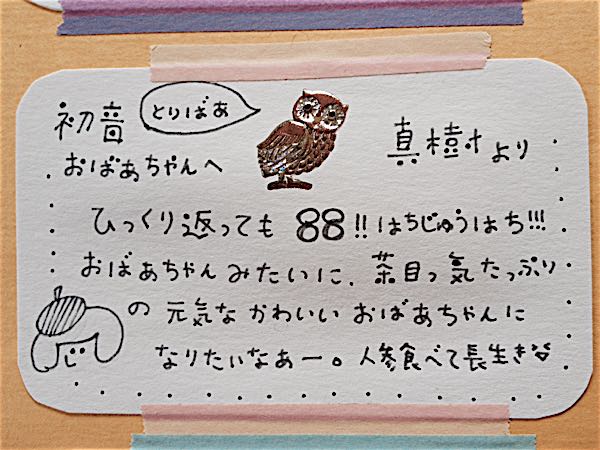 初音
とりばあ
おばあちゃんへ
真樹より
ひっくり返っても 88!! はちじゅうはち!!!
おばあちゃんみたいに、茶目っ気たっぷり
の 元気な かわいい おばあちゃんに
なりたいなあー。人参食べて長生き